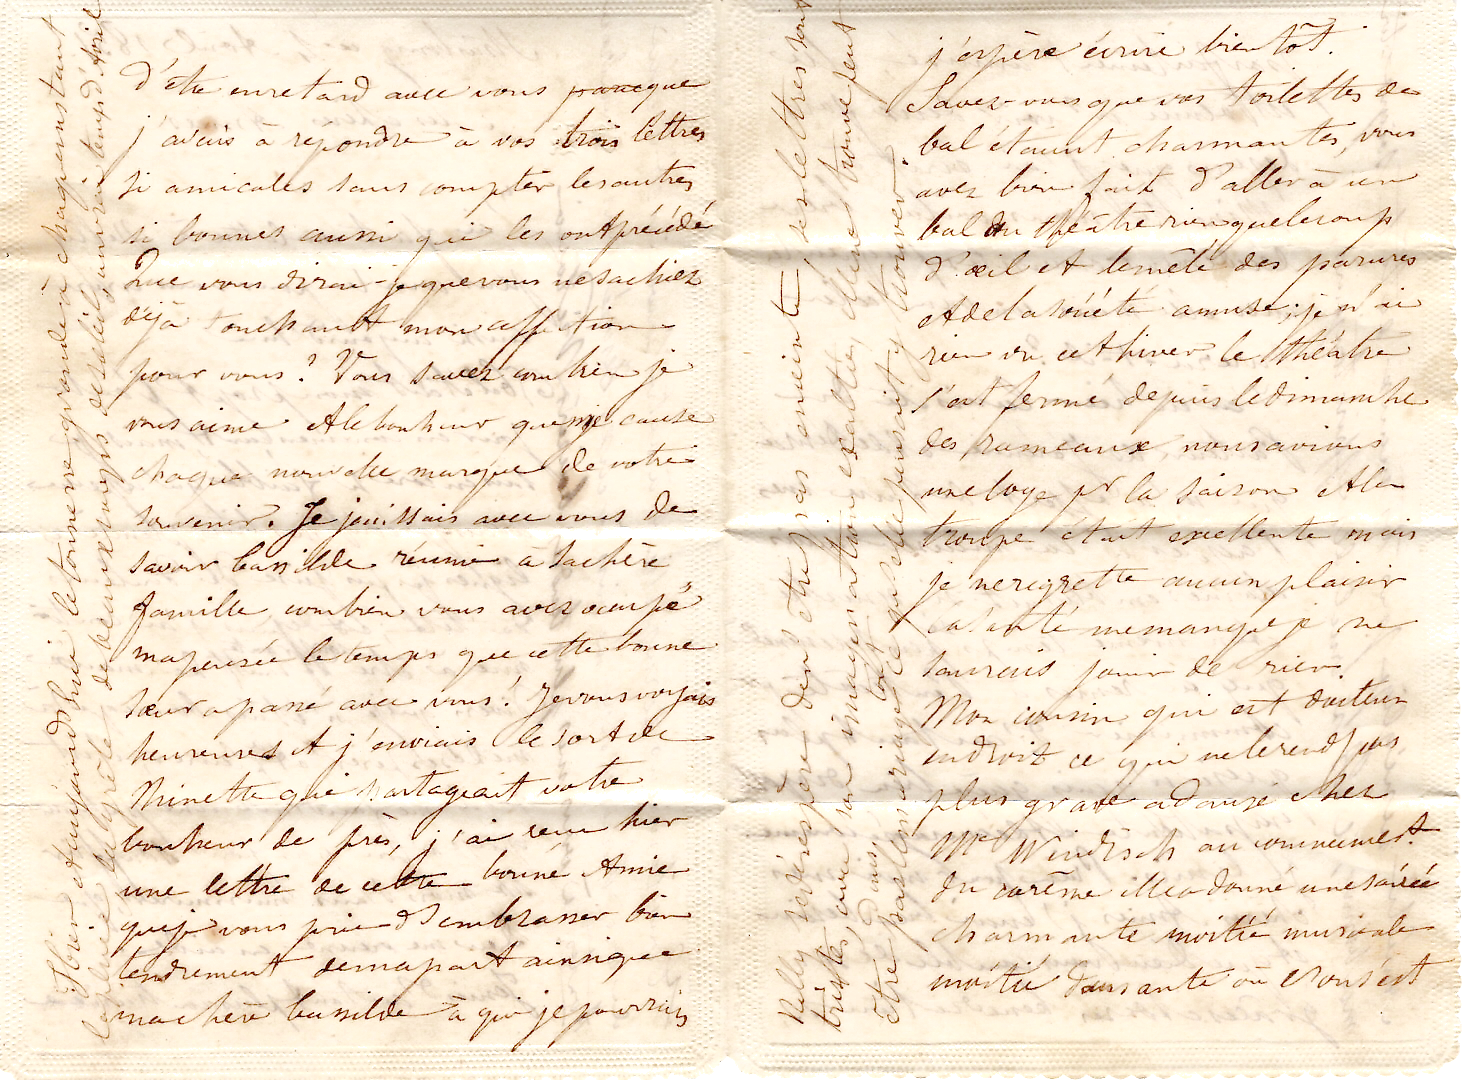 d'être en retard avec vous parceque
j'avais à répondre à vos trois lettres
si amicales sans compter les autres
si bonnes aussi qui les ont précédé
Que vous dirai-je que vous ne sachiez
déjà touchant mon affection
pour vous? Vous savez combien je
vous aime et le bonheur que me cause
chaque nouvelle marque de votre
souvenir. Je jouissais avec vous de
savoir Cassilde réunie à sa chère
famille, combien vous avez occupé
ma pensée le temps que cette bonne
sœur a passé avec vous! Je vous voyais
heureuses et j'enviais le sort de
Minette qui partageait votre
bonheur de près, j'ai reçu hier
une lettre de cette bonne Amie
que je vous prie d'embrasser bien
tendrement de ma part ainsi que
ma chère Cassilde à qui je pourrais
Hier et aujourd'hui le tonnerre gronde à chaque instant
la pluie la grêle de beaux temps des
j'espère écrire bientôt.
Savez-vous que vos toilettes de
bal étaient charmantes, vous
avez bien fait d'aller à un
bal du théâtre rien que le coup
d'œil et le mêlé des parures
et de la société amuse; je n'ai
rien vu cet hiver le théâtre
s'est fermé depuis le dimanche
des rameaux, nous avions
une loge pr la saison et la
troupe était excellente mais
je ne regrette aucun plaisir
la santé me manque je ne
saurais jouir de rien
Mon cousin qui est docteur
en droit ce qui ne le rend pas
plus grave a dansé chez
Mr Windisch au commencemt.
du carême elle a donné une soirée
charmante moitié musicale
moitié dansante où l'on s'est
Nelly se désespère d'en être pas enceinte, ses lettres sont
tristes, avec son imagination exaltée, elle ne trouve peut
être pas le mariage tout ce qu'elle pensait y trouver.